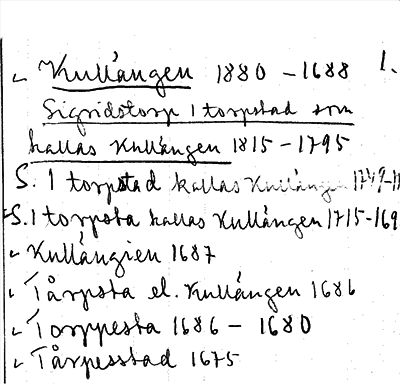 Kullängen 1880 - 1688 1.
Sigridstorp 1 torpstad som
kallas Kullängen 1815 - 1795
S. 1 torpstad kallas Kullängen 1749-
S. 1 torpsta kallas Kullängen 1715-169
Kullängien 1687
Tårpsta el. Kullängen 1686
Torppesta 1686 - 1680
Tårpesstad 1675